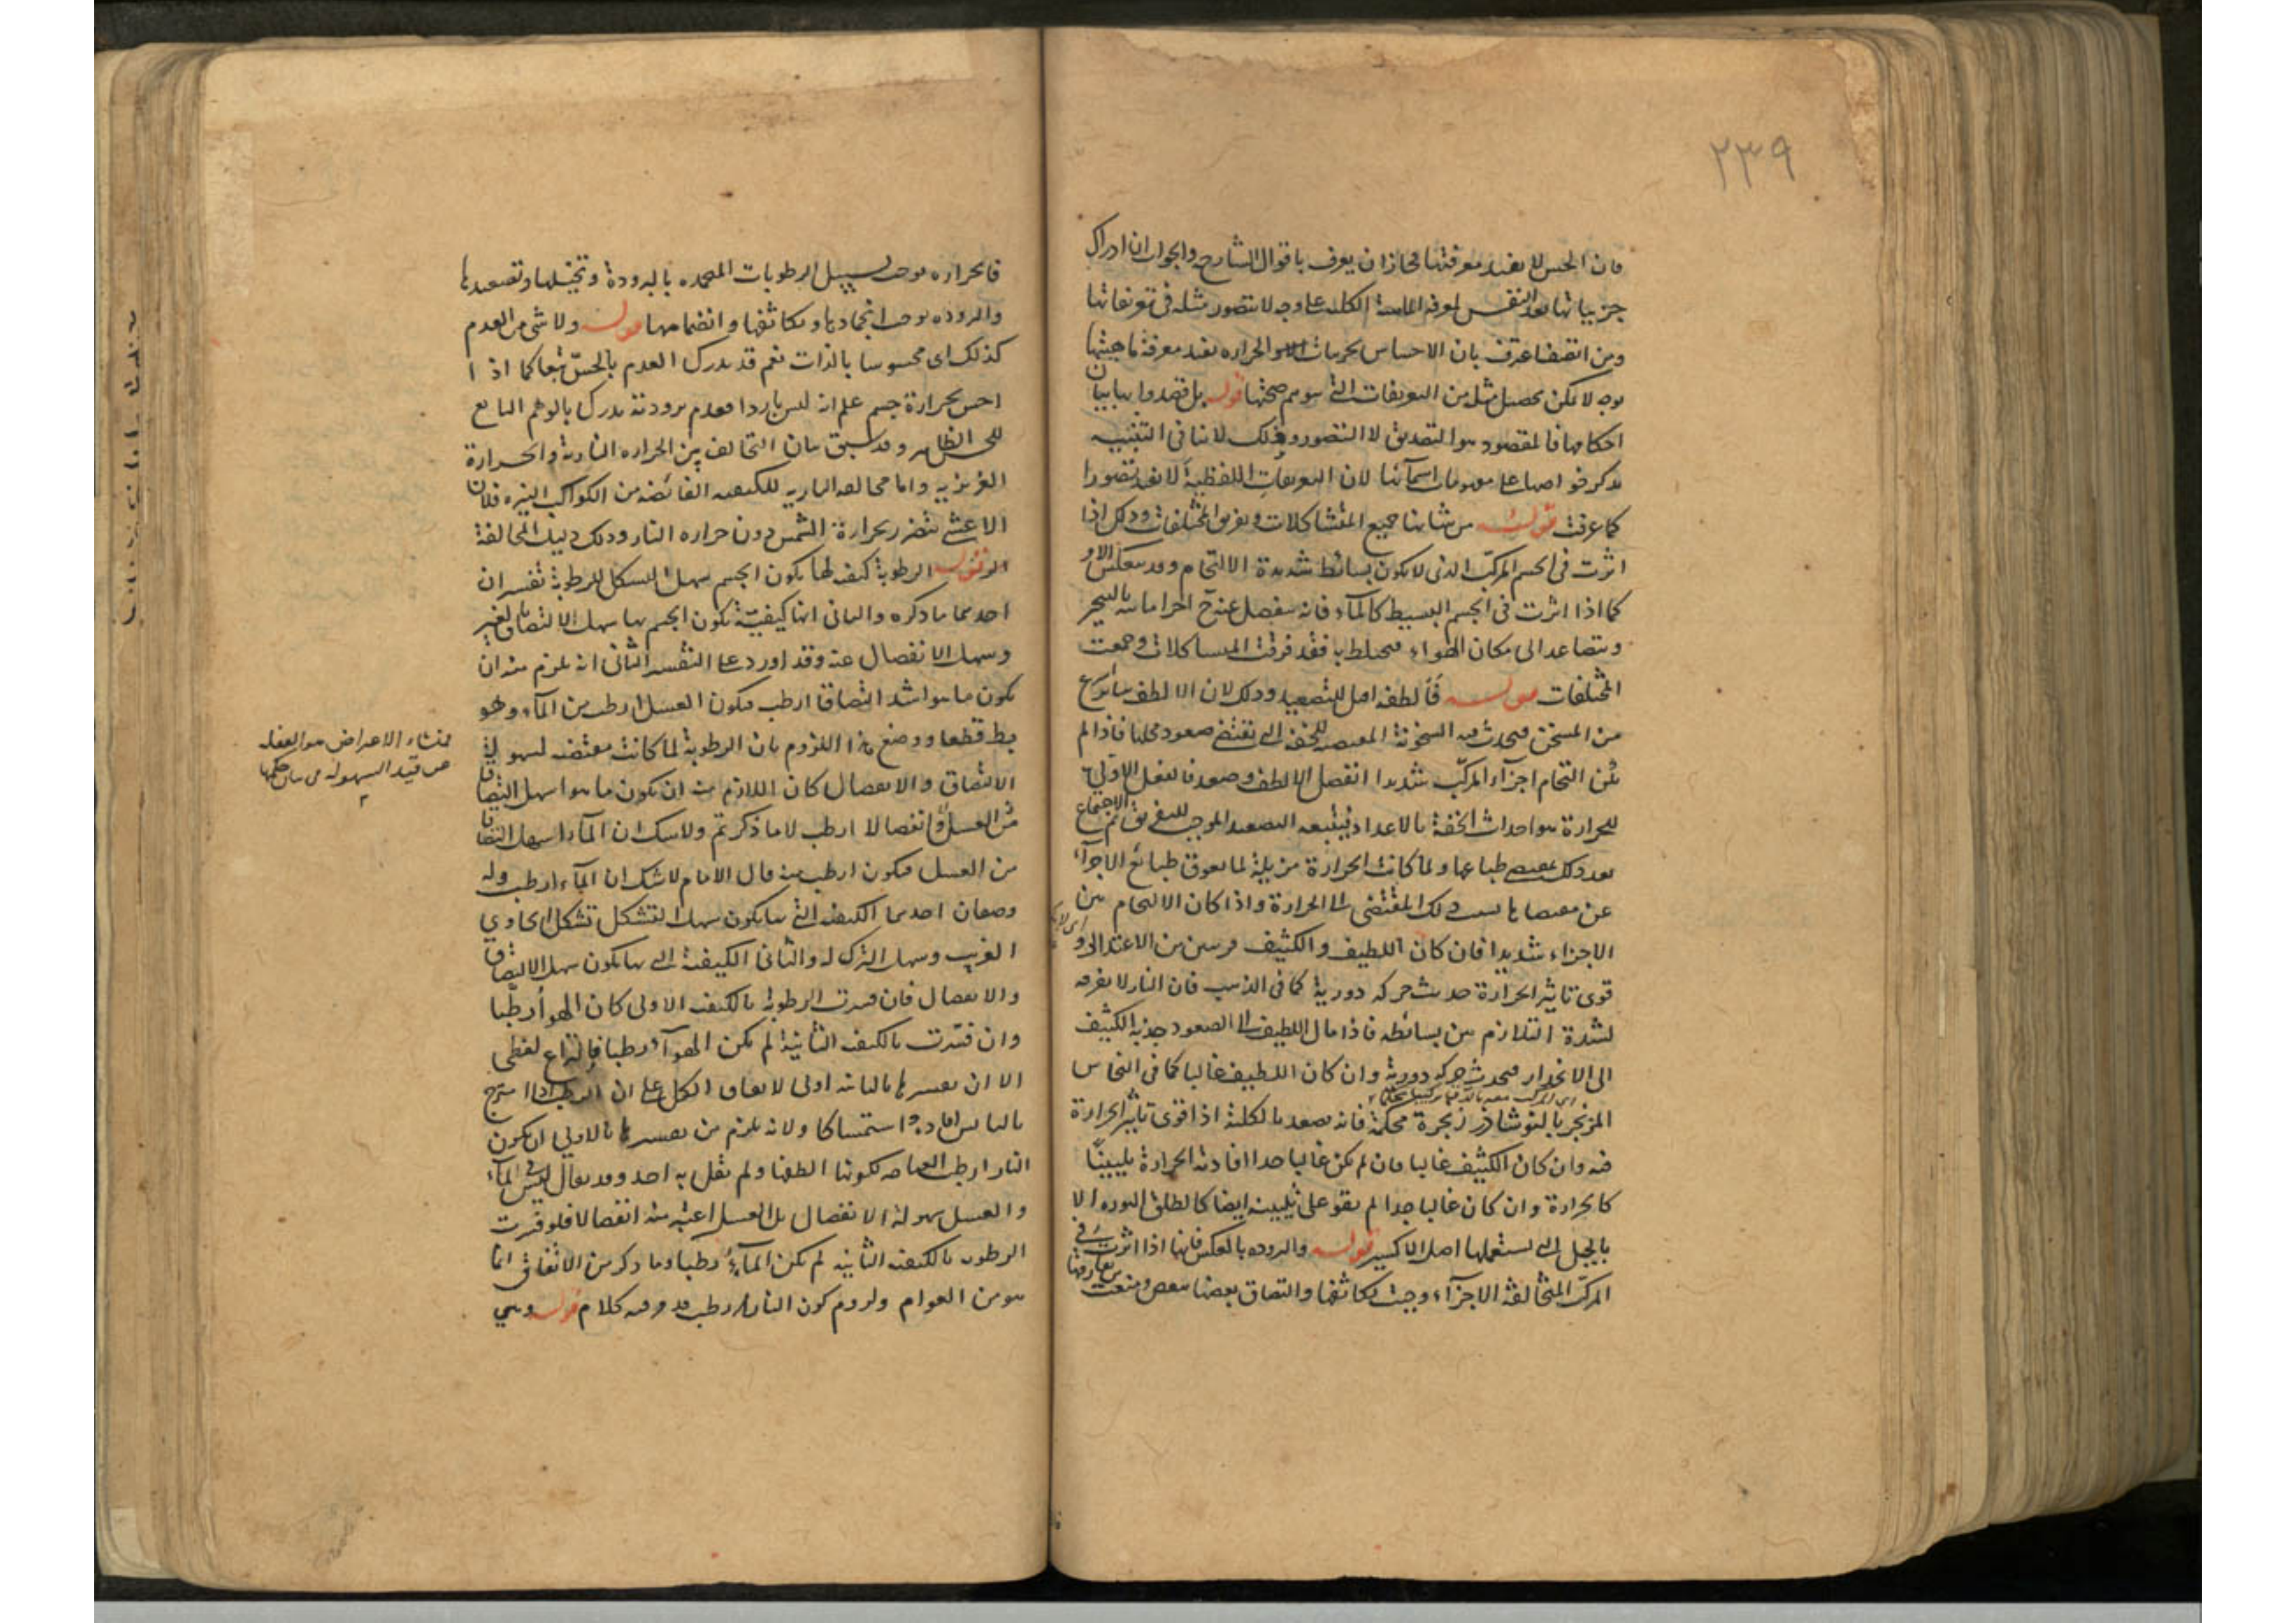 ٢٣٩
فان الحس لا يفيد معرفتها فجاز ان يعرف باقوال الشارحة والجواب ان ادراك
جزيياتها يعد النفس لمعرفة الماهية الكلية على وجه لا يتصور مثله فى تعريفاتها
ومن انصف اعترف بان الاحساس بجزييات الحراره يفيد معرفة ماهيتها
بوجه لا يمكن تحصيل مثله من التعريفات التى يتوهم صحتها قوله بل قصدوا بها بيان
احكامها فالمقصود هو التصديق لا التصور وذلك لا ينافى التنبيه
بذكر خواصها على مفهومات اسمآئها لان التعريفات اللفظية لا تفيد تصورا
كما عرفت قوله من شانها جميع المتشاكلات وتفريق المختلفات وذلك اذا
اثرت فى الجسم المركب الذى لا يكون بسائطه شديدة الالتحام وقد ينعكس الامر
كما اذا اثرت فى الجسم البسيط كالمآء فانه ينفصل عنه ح اجزا مائية بالتبخير
ويتصاعد الى مكان الهواء فيختلط به فقد فرقت المتشاكلات وجمعت
المختلفات قوله فألطفه اميل للتصعيد وذلك لان الالطف يتأثر
من المسخن فيحدث فيه السخونة المقتضيه للخفه التى تقتضى صعود محلها فاذا لم
يكن التحام اجزآء المركب شديدا انفصل الالطف وصعد فالفعل الاولى
للحرارة هو احداث الخفة بالاعداد فيتبعه التصعيد الموجب للتفريق ثم الاجتماع
بعد ذلك بمقتضى طباعها ولما كانت الحرارة مزيلة لما يعوق طبائع الاجزآء
عن مقتضاها نسب ذلك المقتضى الى الحرارة واذا كان الالتحام بين
الاجزاء شديدا فان كان اللطيف والكثيف قريبين من الاعتدال و
قوى تاثير الحرارة حدثت حركه دورية كما فى الذهب فان النار لا تفرقه
لشدة التلازم بين بسائطه فاذا مال اللطيف الى الصعود جذبه الكثيف
الى الانحدار فيحدث حركه دورية وان كان اللطيف غالبا كما فى النحاس
المزنجر بالنوشاذر زنجرة محكمة فانه يصعد بالكلية اذا قوى تاثير الحرارة
فيه وان كان الكثيف غالبا فان لم يكن غالبا جدا افادته الحرارة تليينًا
كالحرارة وان كان غالبا جدا لم تقو على تليينه ايضا كالطلق والنوره الا
بالحيل التى يستعملها اهل الاكسير قوله والبروده بالعكس فانها اذا اثرت فى
المركب المتخالفة الاجزآء وجبت تكاثفها والتصاق بعضها ببعض ومنعت عن تفارقها
فالحراره يوجب تسييل الرطوبات المنجمده بالبرودة وتخييلها وتصعيدها
والبروده يوجب انجمادها وتكاثفها وانضمامها قوله ولا شى من العدم
كذلك اى محسوسا بالذات نعم قد يدرك العدم بالحسّ تبعا كما اذا
احس بحرارة جسم علم انه ليس باردا فعدم برودته يدرك بالوهم التابع
للحس الظاهر وقد سبق بيان التخالف بين الحراره النارية والحرارة
الغريزيه واما مخالفة الناريه للكيفيه الفائضة من الكواكب النيره فلان
الاعشى يتضرر بحرارة الشمس دون حراره النار وذلك دليل المخالفة
قوله الرطوبة كيفية لها يكون الجسم سهل التشكل للرطوبة تفسيران
احدهما ما ذكره والثانى انها كيفيّة يكون الجسم بها سهل الالتصاق بالغير
وسهل الانفصال عنه وقد اورد على التفسير الثانى انه يلزم منه ان
يكون ما هو اشد التصاقا ارطب فيكون العسل ارطب من المآء وهو
بط قطعا ودفع هذا اللزوم بان الرطوبة لما كانت مقتضيه لسهولة
الالتصاق والانفصال كان اللازم منه ان يكون ما هو اسهل التصاقا
من العسل وانفصالا ارطب لا ما ذكرتم ولا شك ان المآء اسهل التصاقا
من العسل فيكون ارطب منه قال الامام لا شك ان المآء ارطب وله
وصفان احدهما الكيفيه التى بها يكون سهل التشكل بشكل الحاوى
الغريب وسهل الترك له والثانى الكيفية التى بها يكون سهل الالتصاق
والانفصال فان فسرت الرطوبة بالكيفيه الاولى كان الهوآ رطبا
وان فسّرت بالكيفيه الثانية لم يكن الهوآء رطبا فالنزاع لفظى
الا ان تفسيرها بالثانيه اولى لاتفاق الكل على ان الرطب اذا امتزج
باليابس افاده استمساكا ولانه يلزم من تفسيرها بالاولى ان يكون
النار ارطب العناصر لكونها الطفها ولم يقل به احد وقد يقال ليس فى المآء
والعسل سهولة الانفصال بل العسل اعتبر منه انفصالا فلو فسرت
الرطوبه بالكيفيه الثانيه لم يكن المآء رطبا وما ذكر من الاتفاق انما
هو من العوام ولزوم كون النار ارطب قد مر فيه كلام قوله وهى
منشاء الاعتراض هو الغفله
عن قيد السهولة فى بيان حكمها